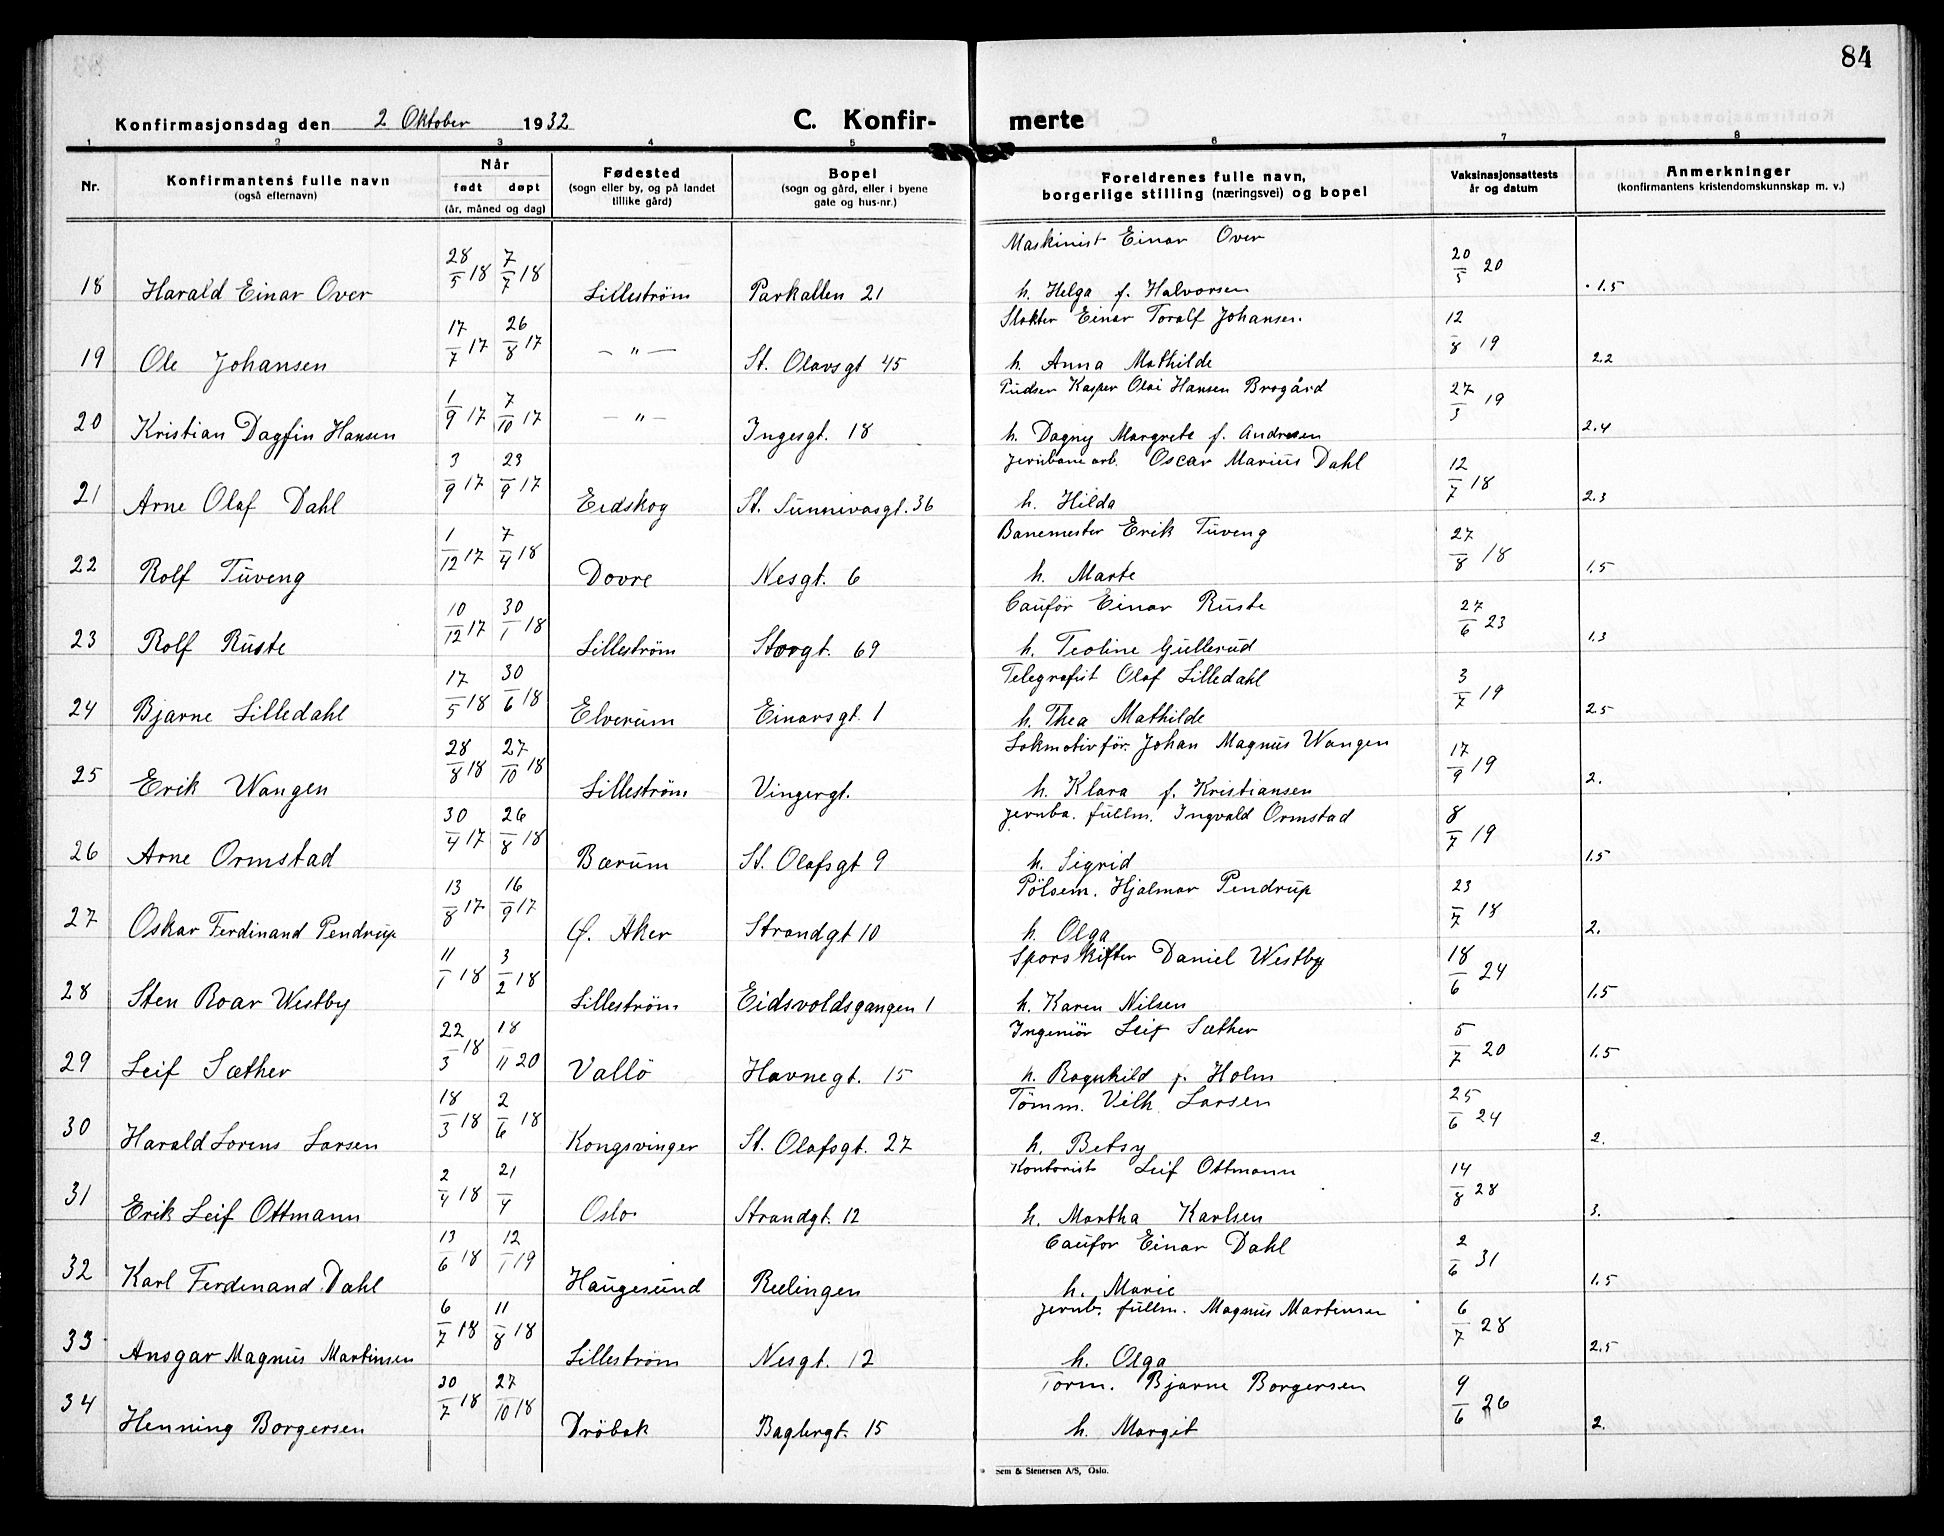 84
Konfirmasjonsdag den 2 Oktober 1932 C. Konfir- merte
1 2 3 4 5 6 7 8
Nr. Konfirmantens fulle navn (også efternavn) Når født døpt (år, måned og dag) Fødested (sogn eller by, og på landet tillike gård) Bopel (sogn og gård, eller i byene gate og hus-nr.) Foreldrenes fulle navn, borgerlige stilling (næringsvei) og bopel Vaksinasjonsattests år og datum Anmerkninger (konfirmantens kristendomskunnskap m. v.)
Maskinist Einar Over
18 Harald Einar Over 28/5 18 7/7 18 Lilleström Parkallen 21 h. Helga f. Halvorsen 20/5 20 1.5
Slakter Einar Toralf Johansen.
19 Ole Johansen 17/7 17 26/8 17 — " — St. Olavsgt 45 h. Anna Mathilde 12/8 19 2.2
Pudser Kasper Olai Hansen Brogård
20 Kristian Dagfin Hansen 1/9 17 7/10 17 — " — Ingesgt. 18 h. Dagny Margrete f. Andresen 27/3 19 2.4
Jernbanearb. Oscar Marius Dahl
21 Arne Olaf Dahl 3/9 17 23/9 17 Eidskog St. Sunnivasgt. 36 h. Hilda 12/7 18 2.3
Banemester Erik Tuveng
22 Rolf Tuveng 1/12 17 7/4 18 Dovre Nesgt. 6 h. Marte 27/8 18 1.5
Cauför Einar Ruste
23 Rolf Ruste 10/12 17 30/1 18 Lilleström Storgt. 69 h. Teoline Gullerud 27/6 23 1.3
Telegrafist Olaf Lilledahl
24 Bjarne Lilledahl 17/5 18 30/6 18 Elverum Einarsgt. 1 h. Thea Mathilde 3/7 19 2.5
Lokmotivför. Johan Magnus Wangen
25 Erik Wangen 28/8 18 27/10 18 Lilleström Vingergt. h. Klara f. Kristiansen 17/9 19 2.
Jernba. fullm. Ingvald Ormstad
26 Arne Ormstad 30/4 17 26/8 18 Bærum St. Olafsgt 9 h. Sigrid 8/7 19 1.5
Pölsem. Hjalmar Pendrup
27 Oskar Ferdinand Pendrup 13/8 17 16/9 17 Ø. Aker Strandgt 10 h. Olga 23/7 18 2.
Sporskifter Daniel Westby
28 Sten Roar Westby 11/1 18 3/2 18 Lilleström Eidsvoldsgangen 1 h. Karen Nilsen 18/6 24 1.5
Ingeniör Leif Sæther
29 Leif Sæther 22/3 18 18/11 20 Vallö Havnegt. 15 h. Ragnhild f. Holm 5/7 20 1.5
Tömm. Vilh. Larsen
30 Harald Lorens Larsen 18/3 18 2/6 18 Kongsvinger St. Olafsgt. 27 h. Betsy 25/6 24 2.
Kontorist Leif Ottmann
31 Erik Leif Ottmann 2/4 18 21/4 Oslo Strandgt. 12 h. Martha Karlsen 14/8 28 3.
Caufor Einar Dahl
32 Karl Ferdinand Dahl 13/6 18 12/1 19 Haugesund Rælingen h. Marie 2/6 31 1.5
Jernb. fullm. Magnus Martinsen
33 Ansgar Magnus Martinsen 6/7 18 11/8 18 Lilleström Nesgt. 12 h. Olga 6/7 28 2.5
Form. Bjarne Borgersen
34 Henning Borgersen 30/7 18 27/10 18 Dröbak Baglergt. 15 h. Margit 9/6 26 2.
Sem & Stenersen A/S, Oslo.